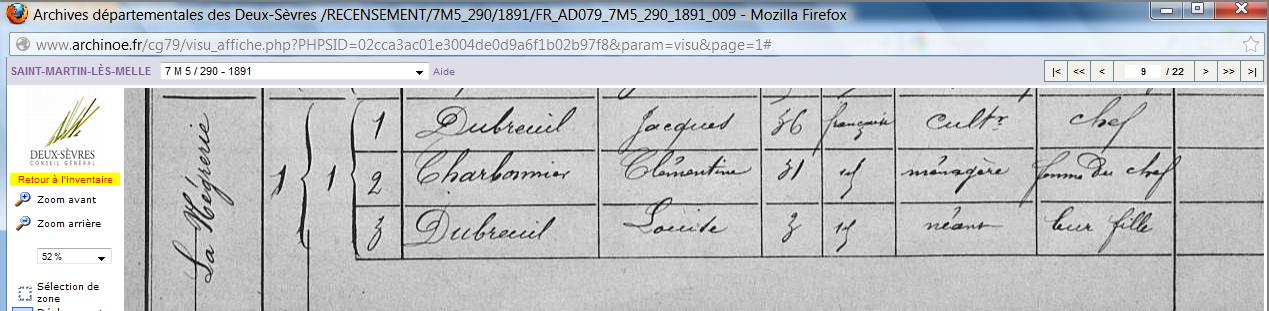 Archives départementales des Deux-Sèvres /RECENSEMENT/7M5_290/1891/FR_AD079_7M5_290_1891_009 - Mozilla Firefox
www.archinoe.fr/cg79/visu_affiche.php?PHPSID=02cca3ac01e3004de0d9a6f1b02b97f8&param=visu&page=1#
SAINT-MARTIN-LÈS-MELLE 7 M 5 / 290 - 1891 Aide |< << < 9 / 22 > >> >|
DEUX-SÈVRES
CONSEIL GÉNÉRAL
Retour à l'inventaire
Zoom avant
Zoom arrière
52 %
Sélection de
zone
La Mégrerie
1 1
1 Dubreuil Jacques 36 française cultr chef
2 Charbonnier Clémentine 31 id ménagère femme du chef
3 Dubreuil Louise 3 id néant leur fille